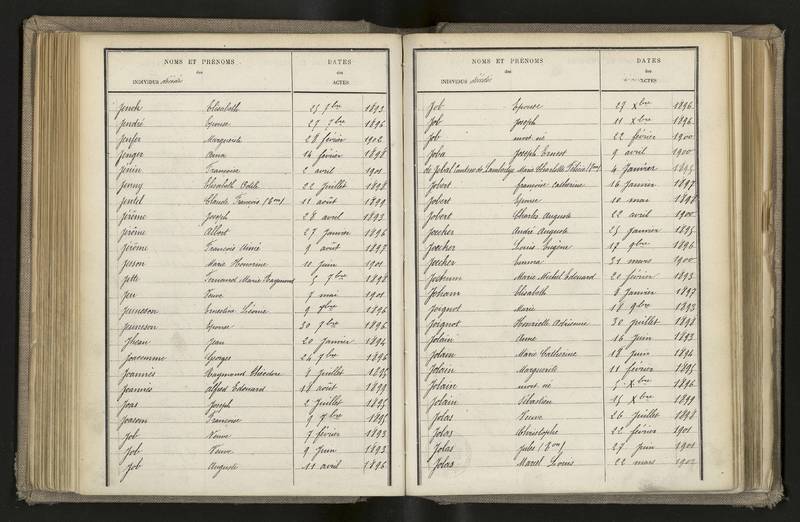 NOMS ET PRÉNOMS DATES
des des
INDIVIDUS décédés ACTES
Jench Elisabeth 25 7bre 1893
Jendré Epouse 27 7bre 1896
Jenfer Marguerite 28 février 1902
Jenger Anna 14 février 1898
Jénin Françoise 2 avril 1901
Jenny Elisabeth Odile 22 Juillet 1898
Jentel Claude François 11 août 1899
Jérôme Joseph 28 avril 1893
Jérôme Albert 27 Janvier 1896
Jérôme François Aimé 9 août 1897
Jeson Marie Honorine 10 Juin 1901
Jette Fernand Marie Raymond 5 7bre 1898
Jeu Veuve 7 mai 1901
Jeuneson Ernestine Léonie 9 7bre 1896
Jeuneson Epouse 30 7bre 1896
Jheau Jean 20 Janvier 1894
Joacemme Georges 26 9bre 1896
Joannès Raymond Théodore 8 Juillet 1895
Joannès Alfred Edouard 18 août 1899
Joas Joseph 2 Juillet 1895
Joasom Françoise 9 7bre 1895
Job Veuve 7 février 1893
Job Veuve 9 Juin 1893
Job Auguste 11 avril 1896
NOMS ET PRÉNOMS DATES
des des
INDIVIDUS décédés ACTES
Job Epouse 29 Xbre 1896
Job Joseph 11 Xbre 1896
Job mort né 22 février 1900
Joba Joseph Ernest 9 avril 1900
de Jobal Comtesse de Marie Charlotte 4 Janvier 1895
Jobert françoise catherine 16 Janvier 1897
Jobert Epouse 10 mai 1898
Jobert Charles Auguste 22 avril 1900
Joecker André Auguste 25 Janvier 1895
Joecker Louis Eugène 17 9bre 1896
Joecker Emma 31 mars 1900
Marie Michel Edouard 20 février 1893
Johann Elisabeth 8 Janvier 1897
Joignot Marie 18 9bre 1893
Joignot Henriette Adrienne 30 Juillet 1898
Jolain Anne 16 Juin 1893
Jolain Marie Catherine 18 Juin 1894
Jolain Marguerite 11 février 1895
Jolain mort né 5 Xbre 1896
Jolain Sébastien 15 Xbre 1899
Jolas Veuve 26 Juillet 1898
Jolas Christophe 22 février 1901
Jolas Jules 27 Juin 1901
Jolas Marcel Louis 22 mars 1902